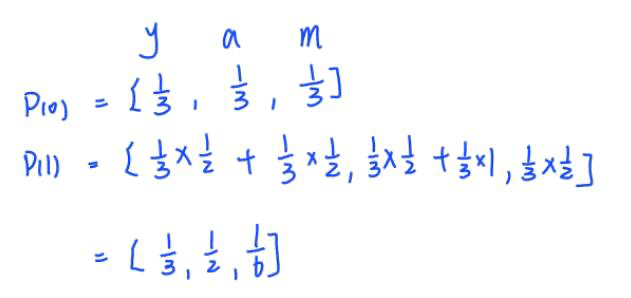 y a m
P(0) = [ 1/3 , 1/3 , 1/3 ]
P(1) = [ 1/3 × 1/2 + 1/3 × 1/2, 1/3 × 1/2 + 1/3 × 1 , 1/3 × 1/2 ]
= [ 1/3 , 1/2 , 1/6 ]